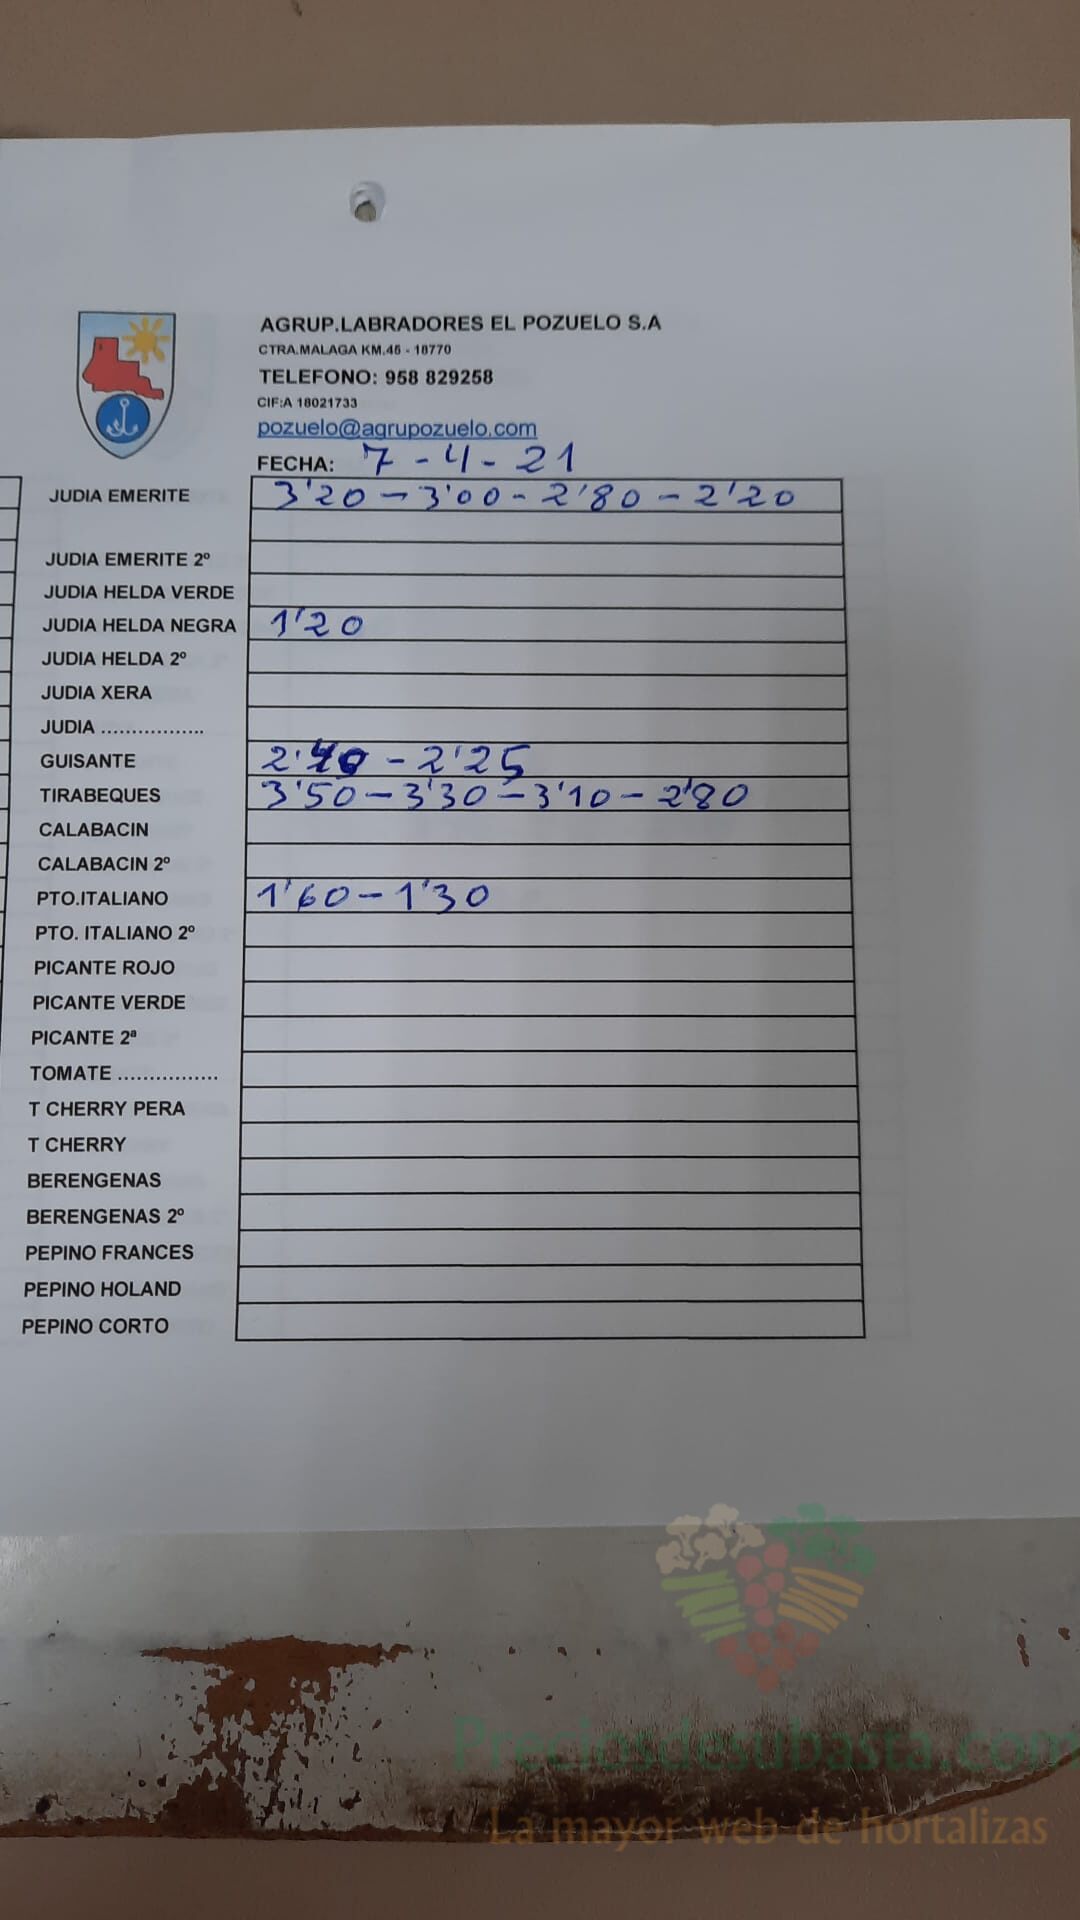 AGRUP.LABRADORES EL POZUELO S.A
CTRA.MALAGA KM.45 - 18770
TELEFONO: 958 829258
CIF:A 18021733
pozuelo@agrupozuelo.com
FECHA: 7-4-21
JUDIA EMERITE 3'20-3'00-2'80-2'20
JUDIA EMERITE 2º
JUDIA HELDA VERDE
JUDIA HELDA NEGRA 1'20
JUDIA HELDA 2º
JUDIA XERA
JUDIA .................
GUISANTE - 2'25
TIRABEQUES 3'50-3'30-3'10-2'80
CALABACIN
CALABACIN 2º
PTO.ITALIANO 1'60-1'30
PTO. ITALIANO 2º
PICANTE ROJO
PICANTE VERDE
PICANTE 2ª
TOMATE ................
T CHERRY PERA
T CHERRY
BERENGENAS
BERENGENAS 2º
PEPINO FRANCES
PEPINO HOLAND
PEPINO CORTO
Preciosdesubasta.com
La mayor web de hortalizas